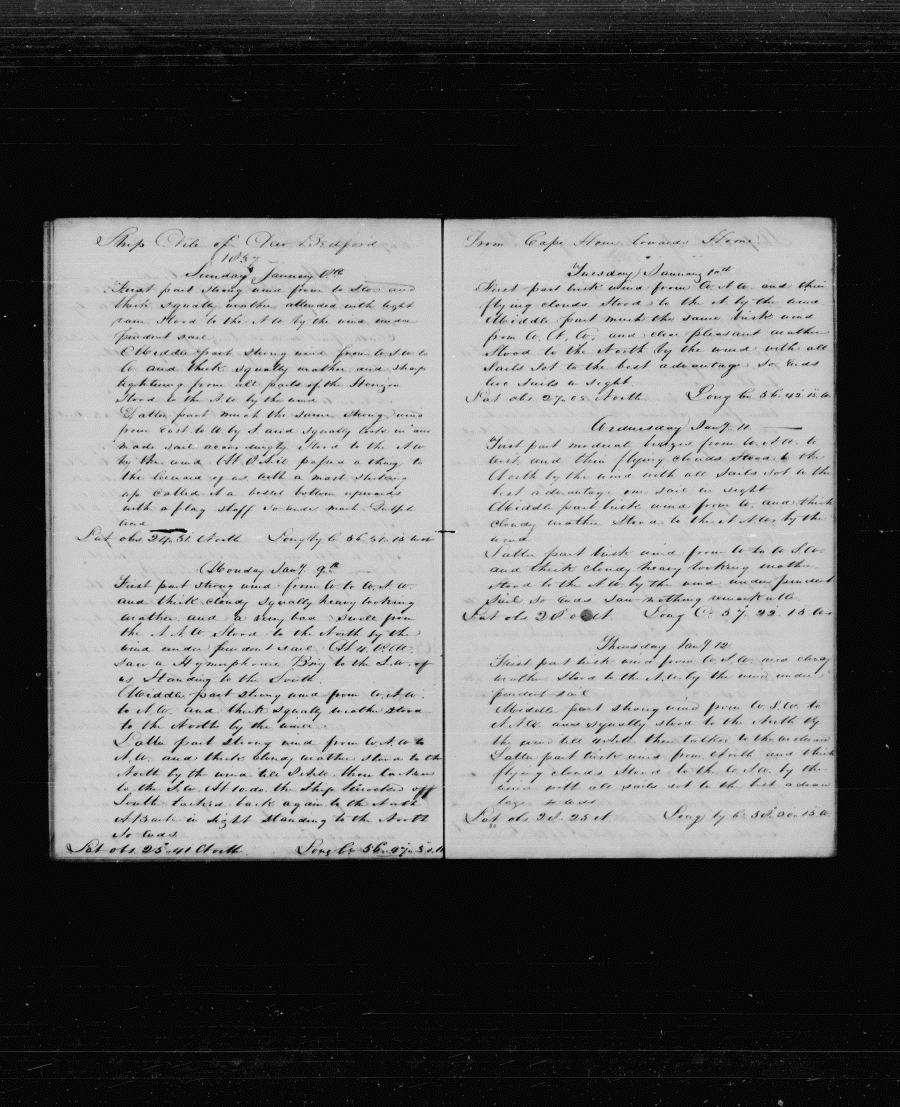 Ship Nile of New Bedford
1837
Sunday January 8th
First part strong wind from W to SW and
thick squally weather attended with light
rain Stood to the N W by the wind under
prudent sail
Middle part strong wind from W.N.W. to
W and thick squally weather and sharp
lightning from all parts of the Horizon
Stood to the N W by the wind
Latter part much the same strong wind
from west to W by S and squally took in and
made sail accordingly stood to the N W
by the wind At passed a thing to
the leeward of us with a mast sticking
up called it a vessel bottom upwards
with a flag staff So ends much Gulph
weed
Lat obs 24. 51 North Long by C 56. 51. 15 West
Monday Jany 9th
First part strong wind from W to W.N.W.
and thick cloudy squally heavy looking
weather and a very bad swell from
the N.N.W. Stood to the North by the
wind under prudent sail At 4 P.M.
saw a Brig to the S.W. of
us Standing to the South
Middle part strong wind from W.N.W.
to N.W. and thick squally weather stood
to the North by the wind
Latter part strong wind from W.N.W to
N.W. and thick cloudy weather stood to the
North by the wind till then tacked
to the S.W. At 10 do. the Ship off
South tacked back again to the North
A Bark in sight Standing to the North
So ends
Lat obs 25. 41 North Long C. 56. 47.
From Cape Horn towards Home
Tuesday January 10th
First part brisk wind from W.N.W. and thin
flying clouds Stood to the N by the wind
Middle part much the same brisk wind
from W.N.W. and clear pleasant weather
Stood to the North by the wind with all
Sails Set to the best advantage So ends
two Sails in sight
Lat obs 27. 05 North Long C. 56. 42. 15 W
Wednesday Jany 11
First part moderate breezes from W.N.W. to
West and thin flying clouds Stood to the
North by the wind with all Sails Set to the
best advantage one sail in sight
Middle part brisk wind from W. and thick
cloudy weather Stood to the N.N.W. by the
wind
Latter part brisk wind from W to W.S.W.
and thick cloudy heavy looking weather
stood to the N.W by the wind under prudent
Sail So ends saw nothing remarkable
Lat obs 28 N. Long C. 57. 22. 15 W
Thursday Jany 12
First part brisk wind from W.S.W. and cloudy
weather Stood to the N.W. by the wind under
prudent sail
Middle part strong wind from W.S.W. to
N.N.W. and squally stood to the North by
the wind till then tacked to the westward
Latter part brisk wind from North and thick
flying clouds Stood to the W.N.W. by the
wind with all sails set to the best advan
tage so ends
Lat obs 28. 25 N Long by C. 58. 20. 15 W